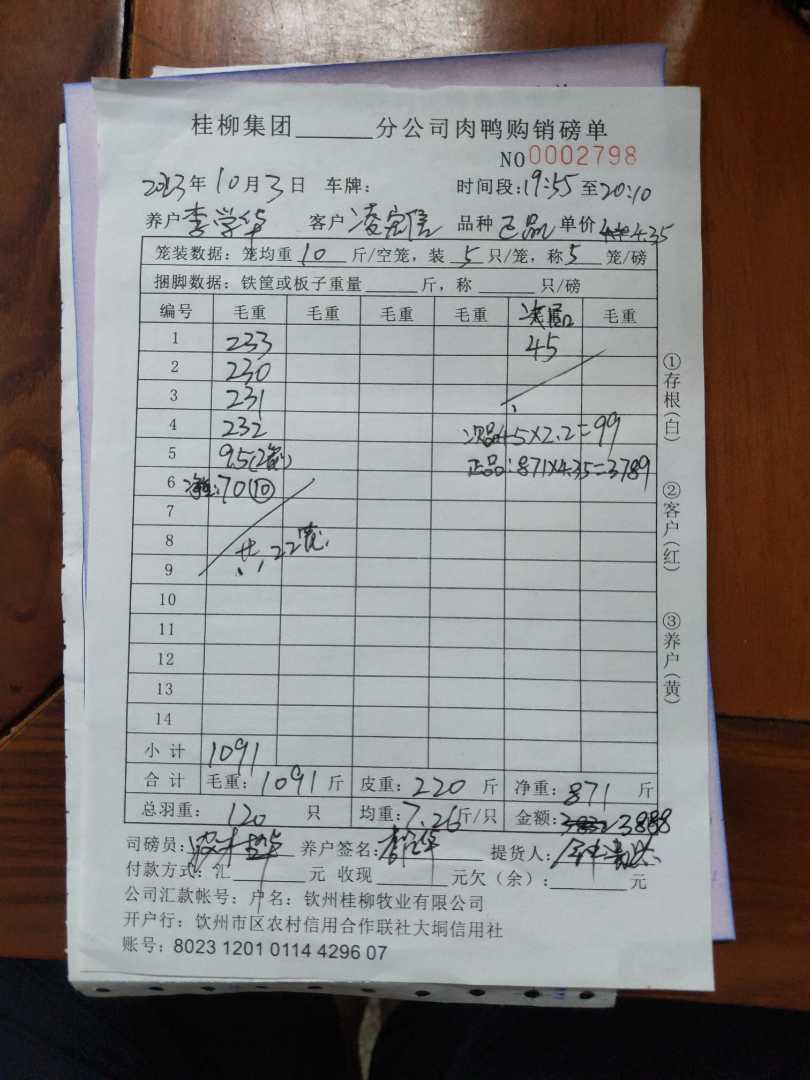 桂柳集团______分公司肉鸭购销磅单
NO 0002798
2023年10月3日 车牌: 时间段:19:55至20:10
养户李学华 客户凌宏信 品种正品 单价4.35
笼装数据:笼均重10斤/空笼,装5只/笼,称5笼/磅
捆脚数据:铁筐或板子重量______斤,称______只/磅
编号 毛重 毛重 毛重 毛重 次品 毛重
1 233 45
2 230
3 231
4 232 次品45×2.2=99
5 95(2笼) 正品:871×4.35=3789
6 70(10)
7
8 共22笼
9
10
11
12
13
14
小计 1091
合计 毛重:1091斤 皮重:220斤 净重:871斤
总羽重:120只 均重:7.26斤/只 金额:3888
司磅员: 养户签名:李学华 提货人:
付款方式:汇______元 收现______元欠(余):______元
公司汇款帐号:户名:钦州桂柳牧业有限公司
开户行:钦州市区农村信用合作联社大垌信用社
账号:8023 1201 0114 4296 07
①存根(白)
②客户(红)
③养户(黄)